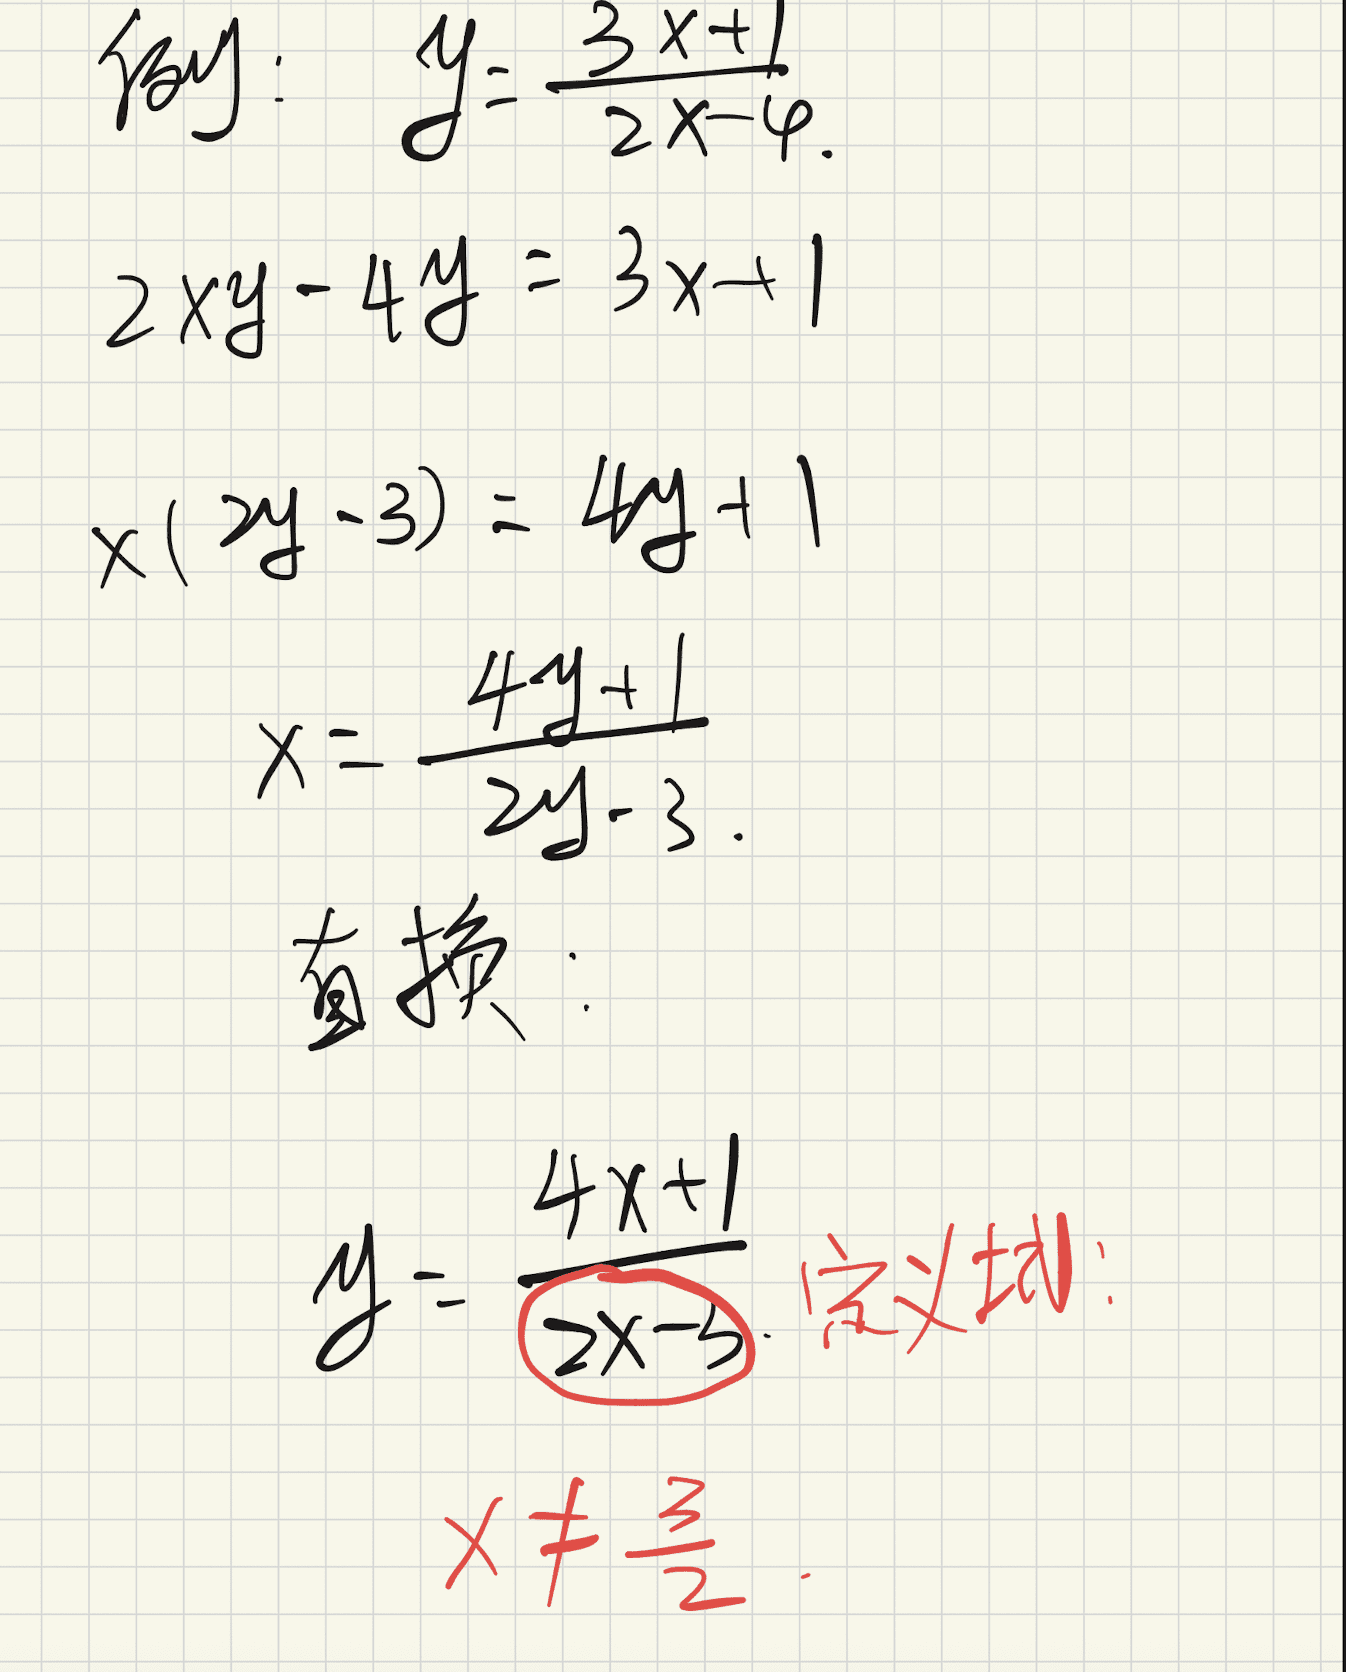 例: y = (3x+1)/(2x-4).
2xy - 4y = 3x+1
x(2y-3) = 4y+1
x = (4y+1)/(2y-3).
直换:
y = (4x+1)/(2x-3). 定义域:
x ≠ 3/2.